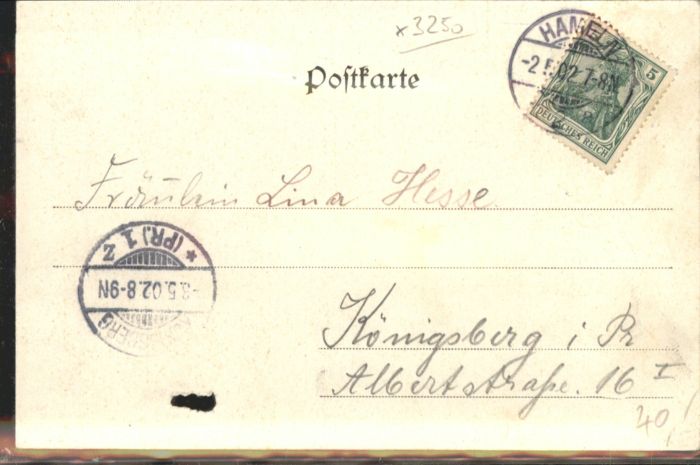 x3250
HAMELN
-2.5.02.7-8N
5
DEUTSCHES REICH
Poſtkarte
Fräulein Lina Hesse
KÖNIGSBERG
-3.5.02.8-9N
* (PR.) 1 z
Königsberg i Pr
Albertstraße. 16 I
40,